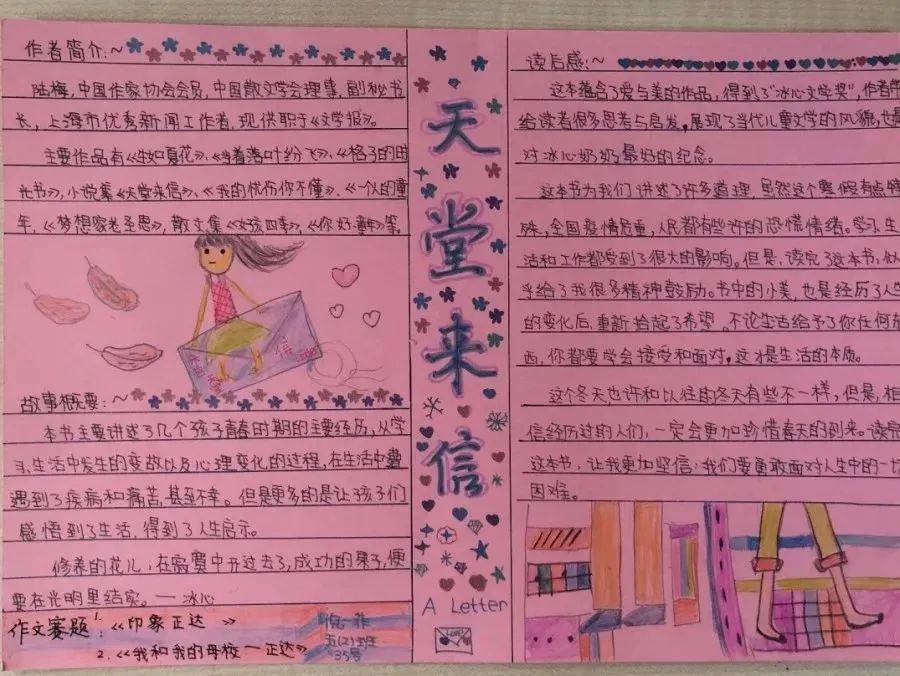 作者简介:~
陆梅,中国作家协会会员,中国散文学会理事,副秘书
长,上海市优秀新闻工作者,现供职于《文学报》。
主要作品有《生如夏花》、《当着落叶纷飞》、《格子的时
光书》,小说集《天堂来信》、《我的忧伤你不懂》、《一个人的童
年,《梦想家老圣恩》,散文集《女孩四季》,《你好童年》等。
故事概要:~
本书主要讲述了几个孩子青春时期的主要经历,从学
习、生活中发生的变故以及心理变化的过程,在生活中遭
遇到了疾病和痛苦,甚至不幸。但是更多的是让孩子们
感悟到了生活,得到了人生启示。
修养的花儿,在寂寞中开过去了,成功的果子,便
要在光明里结实。—冰心
作文赛题:1.《印象正达 》
2.《我和我的母校—正达》
倪一菲
五(2)班
35号
天堂来信
A Letter
读后感:~
这本蕴含了爱与美的作品,得到了"冰心文学奖",作者带
给读者很多思考与启发,展现了当代儿童文学的风貌,也是
对冰心奶奶最好的纪念。
这本书为我们讲述了许多道理,虽然这个寒假有点特
殊,全国疫情危重,人民都有些许的恐慌情绪。学习、生
活和工作都受到了很大的影响。但是,读完了这本书,似
乎给了我很多精神鼓励。书中的小美,也是经历了人生
的变化后,重新拾起了希望。不论生活给予了你任何东
西,你都要学会接受和面对,这才是生活的本质。
这个冬天也许和以往的冬天有些不一样,但是,相
信经历过的人们,一定会更加珍惜春天的到来。读完
这本书,让我更加坚信:我们要勇敢面对人生中的一切
困难。